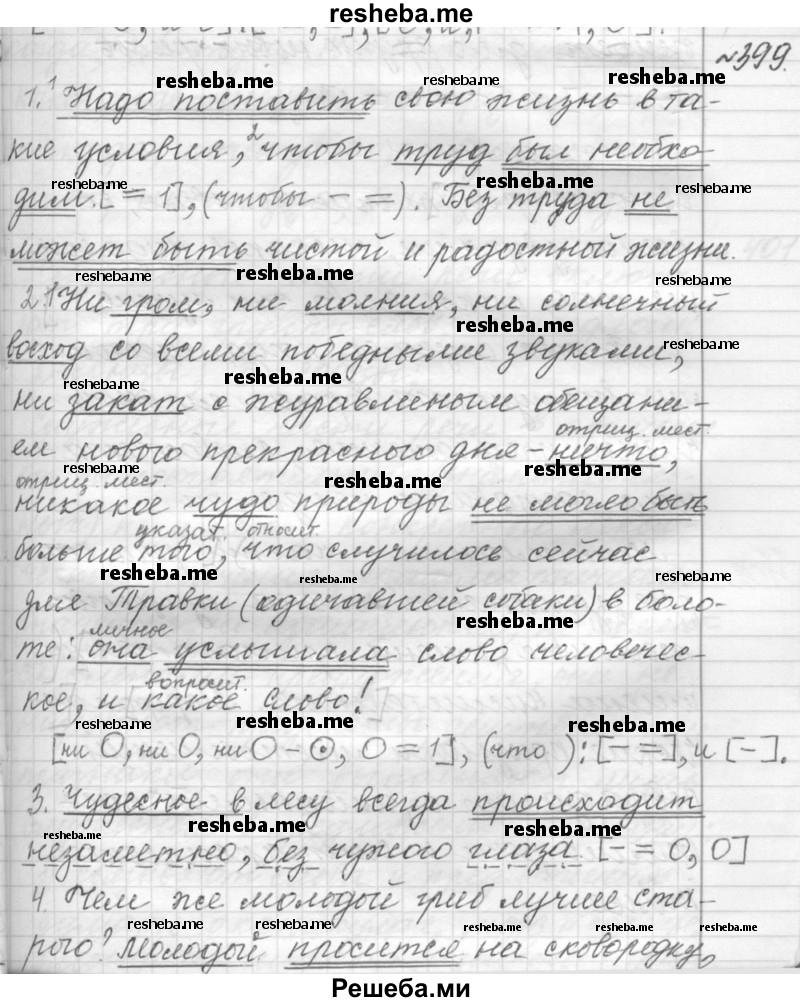 resheba.me
№399.
1. ¹Надо поставить свою жизнь в та-
кие условия, ²чтобы труд был необхо-
дим. [= 1], (чтобы – =). Без труда не
может быть чистой и радостной жизни.
2. 1 Ни гром, ни молния, ни солнечный
восход со всеми победными звуками,
ни закат с журавлиным обещани-
отриц. мест.
ем нового прекрасного дня – ничто,
отриц. мест.
никакое чудо природы не могло быть
указат. относит.
больше того, что случилось сейчас
для Травки (одичавшей собаки) в боло-
личное
те: она услышала слово человечес-
вопросит.
кое, и какое слово!
[ни О, ни О, ни О – ⊙, О = 1], (что ): [– =], и [–].
3. Чудесное в лесу всегда происходит
незаметно, без чужого глаза. [– = О, О]
4. Чем же молодой гриб лучше ста-
рого? Молодой просится на сковородку,
Решеба.ми